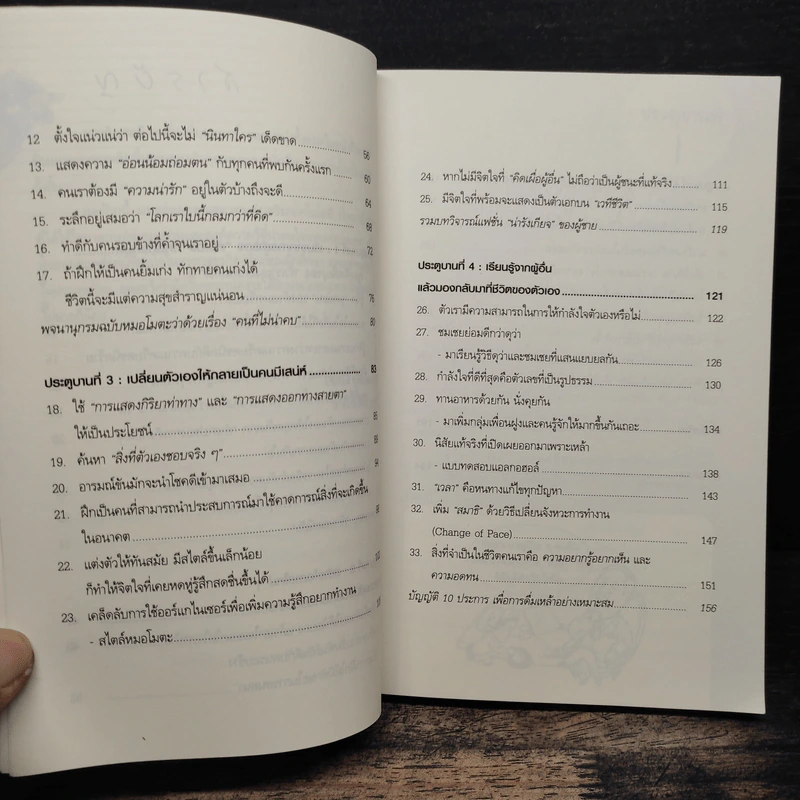 สารบัญ
12 ตั้งใจแน่วแน่ว่า ต่อไปนี้จะไม่ "นินทาใคร" เด็ดขาด 56
13. แสดงความ "อ่อนน้อมถ่อมตน" กับทุกคนที่พบกันครั้งแรก 60
14. คนเราต้องมี "ความน่ารัก" อยู่ในตัวบ้างถึงจะดี 64
15. ระลึกอยู่เสมอว่า "โลกเราใบนี้กลมกว่าที่คิด" 68
16. ทำดีกับคนรอบข้างที่ค้ำจุนเราอยู่ 72
17. ถ้าฝึกให้เป็นคนยิ้มเก่ง ทักทายคนเก่งได้
ชีวิตนี้จะมีแต่ความสุขสำราญแน่นอน 76
พจนานุกรมฉบับหมอโมตะว่าด้วยเรื่อง "คนที่ไม่น่าคบ" 80
ประตูบานที่ 3 : เปลี่ยนตัวเองให้กลายเป็นคนมีเสน่ห์ 83
18. ใช้ "การแสดงกิริยาท่าทาง" และ "การแสดงออกทางสายตา"
ให้เป็นประโยชน์
19. ค้นหา "สิ่งที่ตัวเองชอบจริง ๆ"
20. อารมณ์ขันมักจะนำโชคดีเข้ามาเสมอ
21. ฝึกเป็นคนที่สามารถนำประสบการณ์มาใช้คาดการณ์สิ่งที่จะเกิดขึ้น
ในอนาคต
22. แต่งตัวให้ทันสมัย มีสไตล์ขึ้นเล็กน้อย
ก็ทำให้จิตใจที่เคยหดหู่รู้สึกสดชื่นขึ้นได้
23. เคล็ดลับการใช้ออร์แกไนเซอร์เพื่อเพิ่มความรู้สึกอยากทำงาน
- สไตล์หมอโมตะ
24. หากไม่มีจิตใจที่ "คิดเผื่อผู้อื่น" ไม่ถือว่าเป็นผู้ชนะที่แท้จริง 111
25. มีจิตใจที่พร้อมจะแสดงเป็นตัวเอกบน "เวทีชีวิต" 115
รวมบทวิจารณ์แฟชั่น "น่ารังเกียจ" ของผู้ชาย 119
ประตูบานที่ 4 : เรียนรู้จากผู้อื่น
แล้วมองกลับมาที่ชีวิตของตัวเอง 121
26. ตัวเรามีความสามารถในการให้กำลังใจตัวเองหรือไม่ 122
27. ชมเชยย่อมดีกว่าดุว่า
- มาเรียนรู้วิธีดุว่าและชมเชยที่แสนแยบยลกัน 126
28. กำลังใจที่ดีที่สุดคือตัวเลขที่เป็นรูปธรรม 130
29. ทานอาหารด้วยกัน นั่งคุยกัน
- มาเพิ่มกลุ่มเพื่อนฝูงและคนรู้จักให้มากขึ้นกันเถอะ 134
30. นิสัยแท้จริงที่เปิดเผยออกมาเพราะเหล้า
- แบบทดสอบแอลกอฮอล์ 138
31. "เวลา" คือหนทางแก้ไขทุกปัญหา 143
32. เพิ่ม "สมาธิ" ด้วยวิธีเปลี่ยนจังหวะการทำงาน
(Change of Pace) 147
33. สิ่งที่จำเป็นในชีวิตคนเราคือ ความอยากรู้อยากเห็น และ
ความอดทน 151
บัญญัติ 10 ประการ เพื่อการดื่มเหล้าอย่างเหมาะสม 156